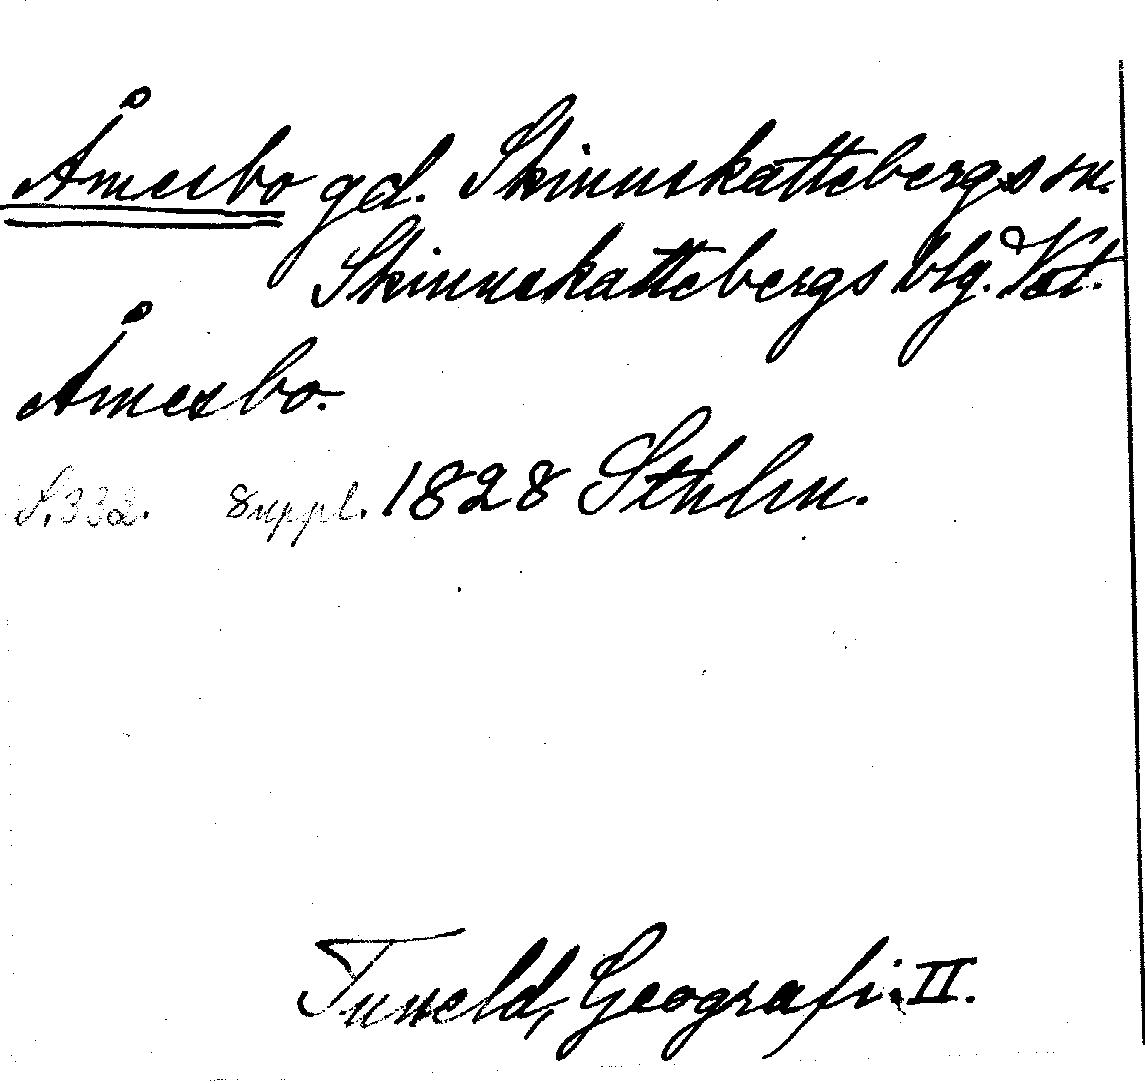 Åmesbo gd. Skinnskattebergs sn.
Skinnskattebergs blg. Vstl.
Åmesbo.
S. 332. Suppl. 1828 Sthlm.
Tuneld, Geografi. II.